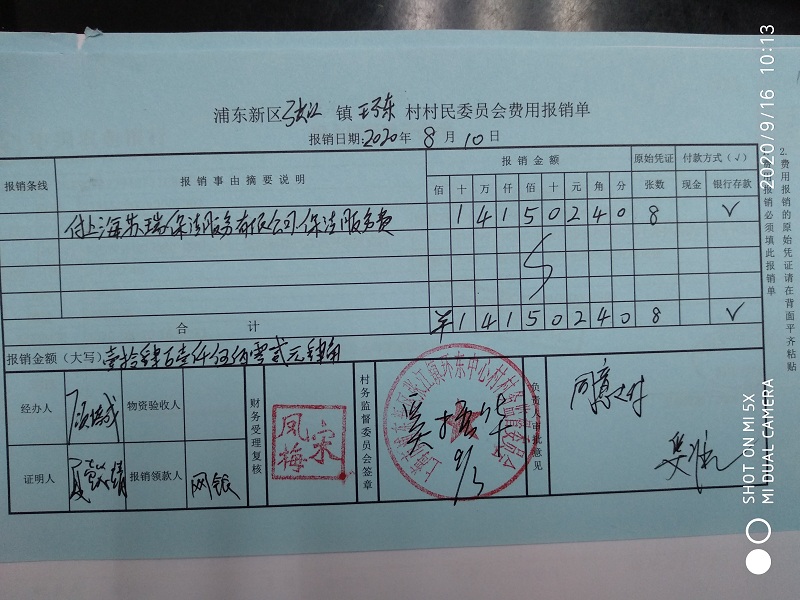 浦东新区张江镇环东村村民委员会费用报销单
报销日期:2020年8月10日
报销条线 报销事由摘要说明 报销金额 原始凭证 付款方式(√)
佰 十 万 仟 佰 十 元 角 分 张数 现金 银行存款
付上海苏瑞保洁服务有限公司保洁服务费 1 4 1 5 0 2 4 0 8 √
合计 ¥ 1 4 1 5 0 2 4 0 8 √
报销金额(大写)壹拾肆万壹仟伍佰零贰元肆角
经办人 物资验收人
证明人 报销领款人 网银
财务受理复核
宋凤梅
村务监督委员会签章
张江镇环东中心村村务监督委员会
9/3
负责人审批意见
同意支付
费报销必须填此报销单
2.费用报销的原始凭证请在背面平齐粘贴
2020/9/16 10:13
SHOT ON MI 5X
MI DUAL CAMERA